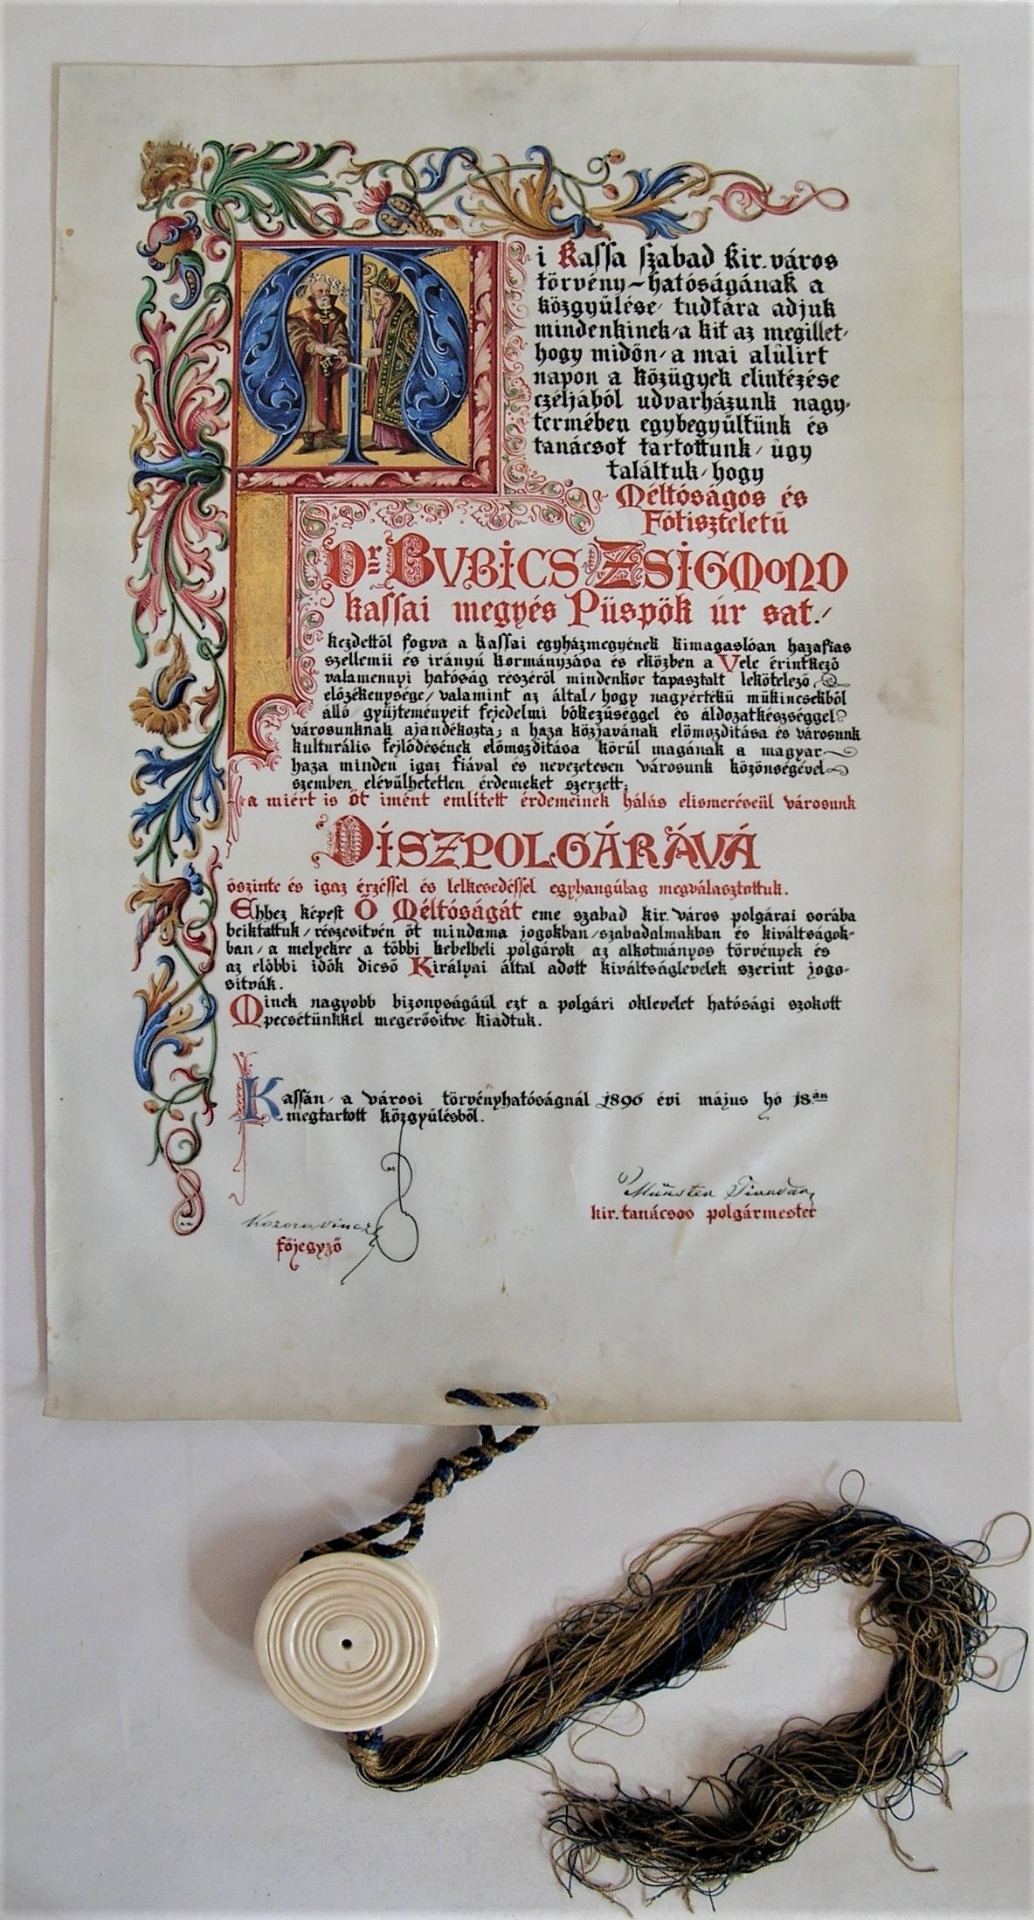 Mi Kassa szabad kir. város
törvény-hatóságának a
közgyűlése, tudtára adjuk
mindenkinek, a kit az megillet,
hogy midőn, a mai alúlirt
napon a közügyek elintézése
czéljából udvarházunk nagy-
termében egybegyűltünk és
tanácsot tartottunk, úgy
találtuk, hogy
Méltóságos és
Főtisztelétű
Dr. BUBICS ZSIGMOND
kassai megyés Püspök úr sat.,
kezdettől fogva a kassai egyházmegyének kimagaslóan hazafias
szellemü és irányú kormányzása és eközben a Vele érintkező
valamennyi hatóság részéről mindenkor tapasztalt lekötelező
előzékenysége, valamint az által, hogy nagyértékü műkincsekből
álló gyűjteményeit fejedelmi bőkezűséggel és áldozatkészséggel
városunknak ajándékozta, a haza közjavának előmozditása és városunk
kulturális fejlődésének előmozditása körül magának a magyar
haza minden igaz fiával és nevezetesen városunk közönségével
szemben elévülhetetlen érdemeket szerzett;
a miért is Őt imént említett érdemeinek hálás elismeréseül városunk
DÍSZPOLGÁRÁVÁ
őszinte és igaz érzéssel és lelkesedéssel egyhangúlag megválasztottuk.
Ehhez képest Ő Méltóságát eme szabad kir. város polgárai sorába
beiktattuk, részesitvén őt mindama jogokban, szabadalmakban és kiváltságok-
ban, a melyekre a többi kebelbeli polgárok az alkotmányos törvények és
az előbbi idők dicső Királyai által adott kiváltságlevelek szerint jogo-
sitvák.
Minek nagyobb bizonyságáúl ezt a polgári oklevelet hatósági szokott
pecsétünkkel megerősitve kiadtuk.
Kassán, a városi törvényhatóságnál 1896 évi május hó 18.án
megtartott közgyűlésből.
Münster Tivadar
kir. tanácsos polgármester
Kozora Vincze
főjegyző